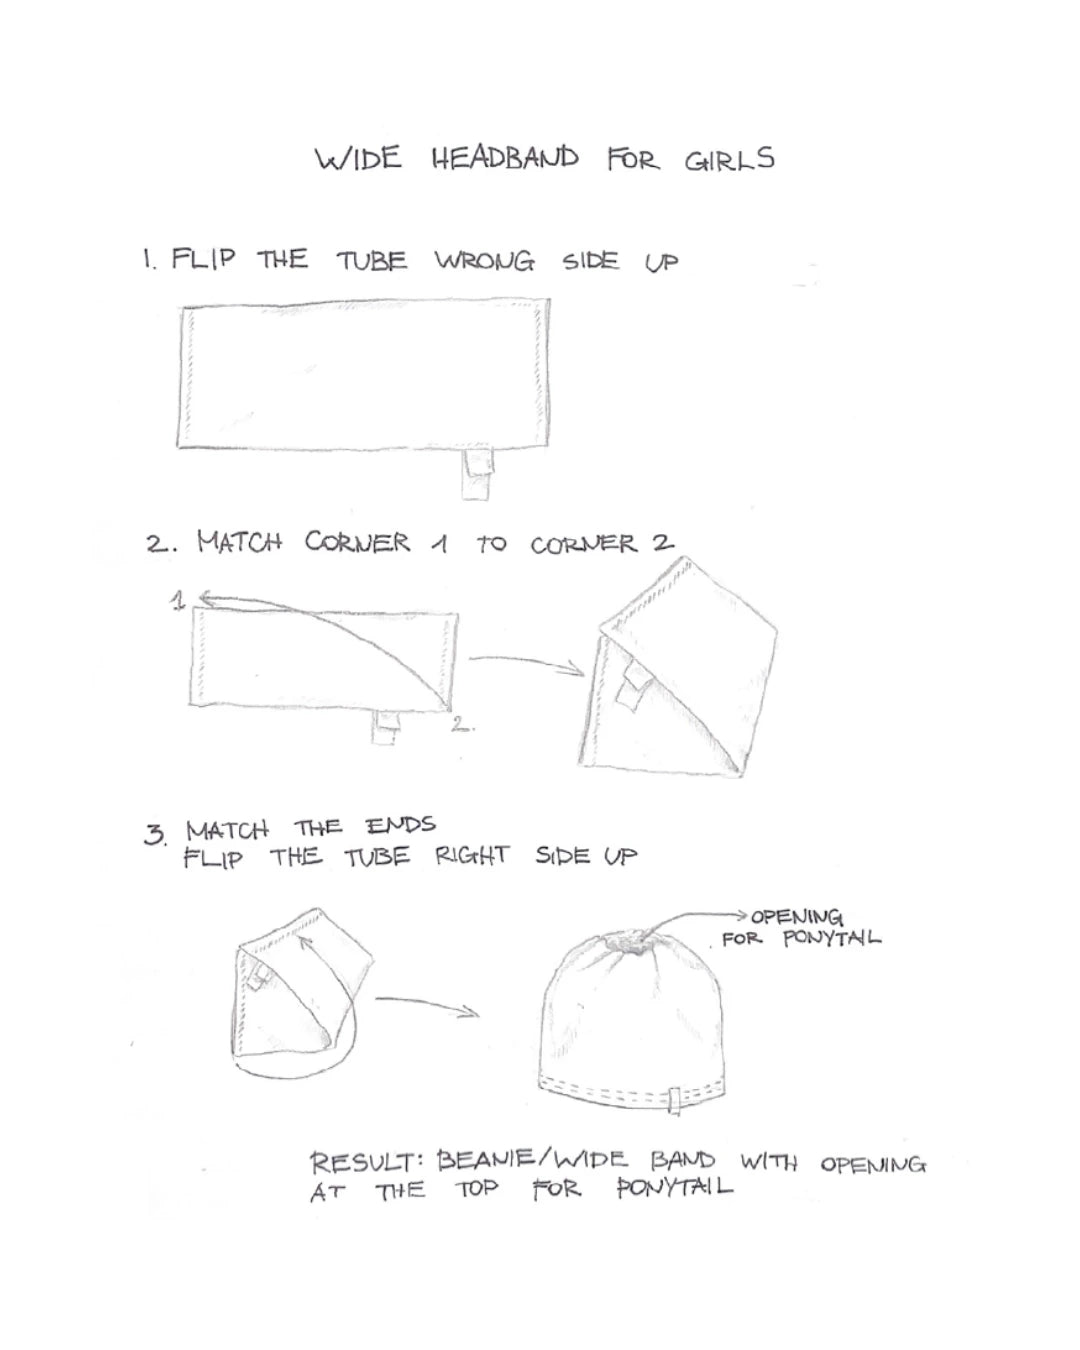 WIDE HEADBAND FOR GIRLS
1. FLIP THE TUBE WRONG SIDE UP
2. MATCH CORNER 1 TO CORNER 2
1
2.
3. MATCH THE ENDS
FLIP THE TUBE RIGHT SIDE UP
OPENING
FOR PONYTAIL
RESULT: BEANIE/WIDE BAND WITH OPENING
AT THE TOP FOR PONYTAIL